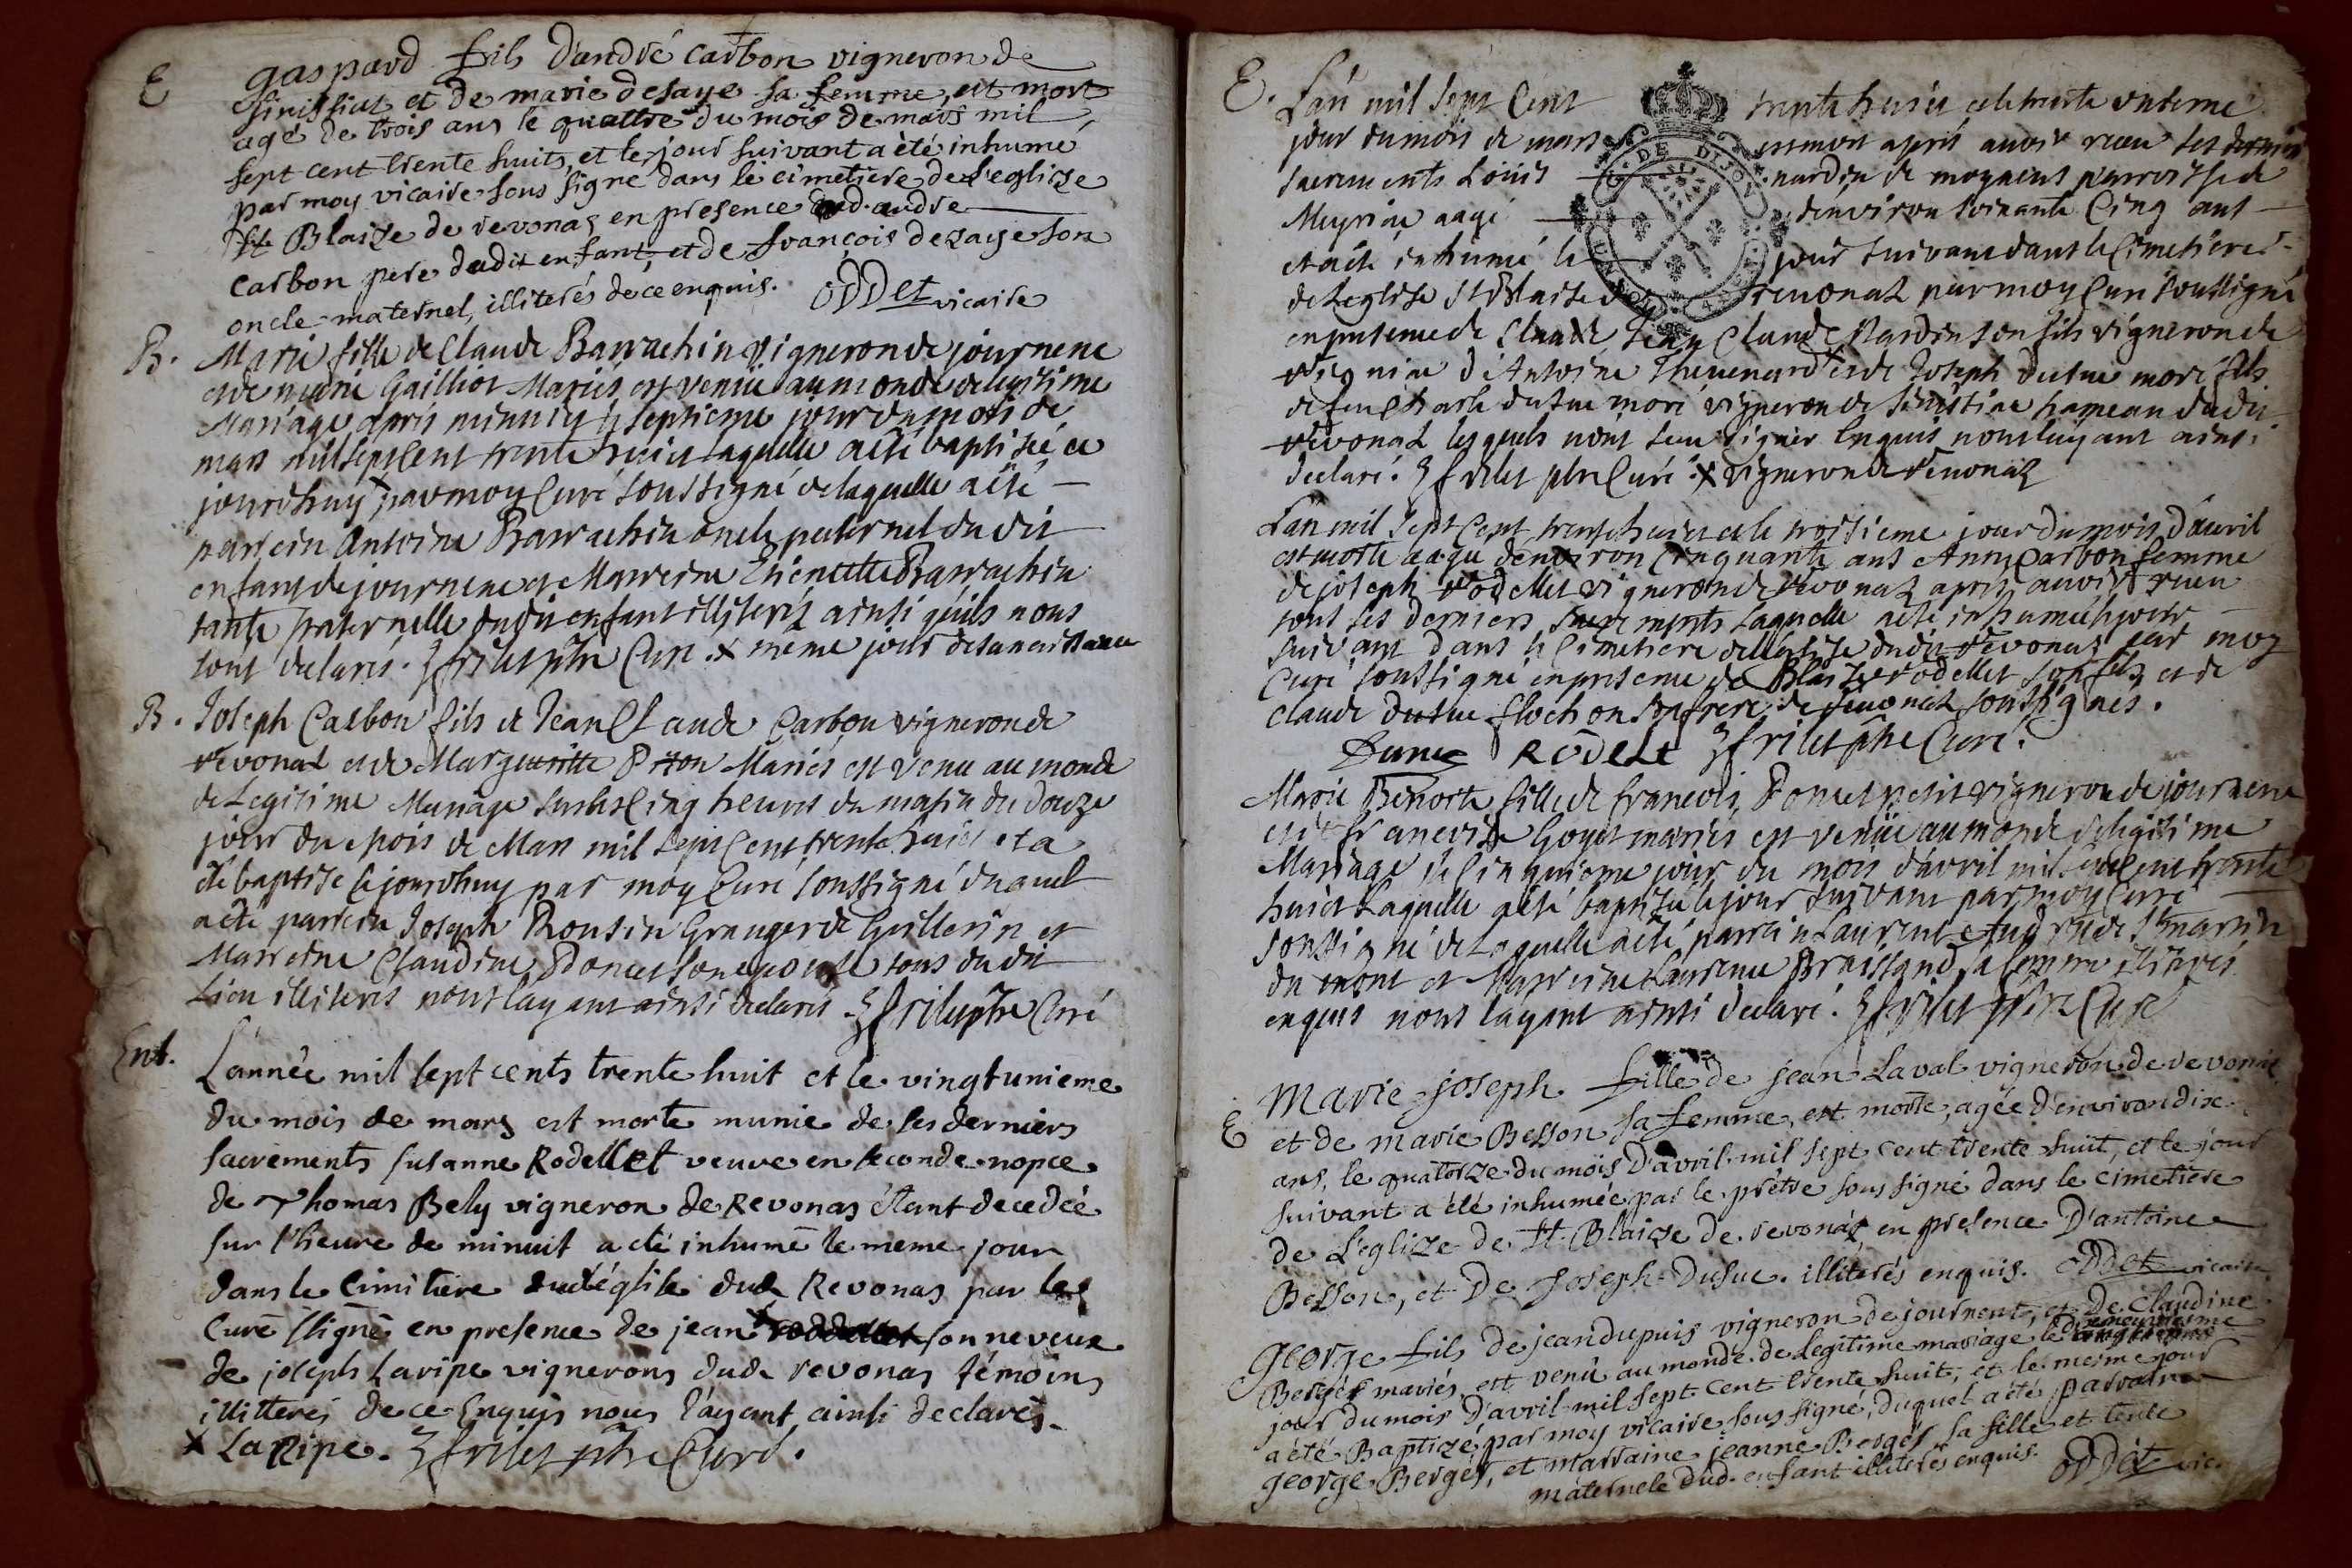 E gaspard fils d'andré carbon vigneron de
sinissiat et de marie desaye sa femme, est mort
agé de trois ans le quattre du mois de mars mil
sept cent trente huits, et le jour suivant a èté inhumé
par moy vicaire sous signé dans le cimetiere de l'eglize
st Blaize de revonaz en presence dud. andre
carbon pere dudit enfant, et de françois dezaye son
oncle maternel, illiterés de ce enquis. oddet vicaire
B. Marie fille de Claude Barrachin vigneron de journene
et de marie Gailliot Mariés est venüe au monde de legitime
Mariage apres minuit le septieme jour du mois de
mars mil sept Cent trente huict laquelle a èté baptisée ce
jourdhuy x par moy Curé soussigné de laquelle a èté
parrein Antoine Barrachin oncle paternel du dit
enfant de journene et Marreine Etienette Barrachin
tante paternelle du dit enfant illiterés ainsi qu'ils nous
sont declarés. frilet ptre Curé. x même jour de sa naissance
B. Joseph Carbon fils de Jean Claude Carbon vigneron de
revonaz et de Margueritte Piton Mariés est venu au monde
de Legitime Mariage sur les Cinq heures du matin du douze
jour du Mois de Mars mil sept Cent trente huict et a
été baptisé ce jourdhuy par moy Curé soussigné duquel
a èté parrein Joseph Rousin Granger de Guillerin et
Marreine Claudine Poncet son epouse tous du dit
Lieu illiterés nous layant ainsi declarés. frilet ptre Curé
Ent. L'année mil sept cents trente huit et le vingt unieme
du mois de mars est morte munie de ses derniers
sacrements susanne Rodellet veuve en seconde nopce
de Thomas Bely vigneron de Revonas étant decedeé
sur l'heure de minuit a eté inhumé le meme jour
dans le Cimitiere de l'église dud. Revonas par le
Curé ssigné en presence de jean x son neveux
de joseph Laripe vignerons dud. revonas témoins
illitterés de ce Enquis nous l'áyant ainsi declarés.
x Laripe. frilet ptre Curé.
E. L'an mil sept Cent trente huict et le trente unieme
jour du mois de mars est mort aprés avoir receu ses derniers
sacrements Loüis nardin de moyneus parroisse de
Meyriac aagé denviron soixante Cinq ans
et a èté inhumé le jour suivant dans le Cimetiere
de Leglise st Blaise de revonaz par moy Curé soussigné
en presence de Claude Jean Claude Nardin son fils vigneron de
d'Antoine Thevenard x et de Joseph dusuc moré fils
de feu Charle dusuc moré vigneron de Senissiac hameau dudit
revonaz lesquels n'ont sceu signer Enquis nous layant ainsi
declaré. frilet ptre Curé. x vigneron de revonaz
L'an mil sept Cent trente huict et le troisieme jour du mois d'avril
est morte aagée denviron Cinquante ans Anne Carbon femme
de joseph rodellet vigneron de revonaz apres avoir receu
tous ses derniers sacrements laquelle a èté inhumée le jour
suivant dans le Cimetiere de l'eglise dudit revonaz par moy
Curé soussigné en presence de Blaise rodellet son fils et de
Claude dusuc flochon de revonaz soussignés.
Dusuc Rodelet frilet ptre Curé.
Marie Benoite fille de francois Poncet petit vigneron de journene
et de francoise Goyet mariés est venüe au monde de legitime
Mariage le Cinquieme jour du mois d'avril mil sept Cent trente
huict Laquelle a èté baptisée le jour suivant par moy Curé
soussigné de Laquelle a èté parrein Laurent de st martin
du mont et Marreine Laurence Braissand sa femme illiterés
enquis nous layant ainsi declaré. frilet ptre Curé
E Marie joseph fille de jean Laval vigneron de revonas
et de marie Besson sa femme, est morte, agée d'environ dix
ans, le quatorze du mois d'avril mil sept cent trente huit, et le jour
suivant a été inhumée par le prêtre sous signé dans le cimetière
de l'eglize de st. Blaize de revonaz, en presence d'antoine
Besson, et de Joseph Dusuc. illiterés enquis. oddet vicaire
george fils de jean dupuis vigneron de journent, et de claudine
Bergés mariés, est venü au monde de legitime mariage le dixneuviesme
jour du mois d'avril mil sept cent trente huit, et le mesme jour
a été Baptizé par moy vicaire sous signé, duquel a été parrain
george Bergés, et marraine jeanne Bergés sa fille et tente
maternele dud. enfant illiterés enquis. oddet vic.
DE DIJON